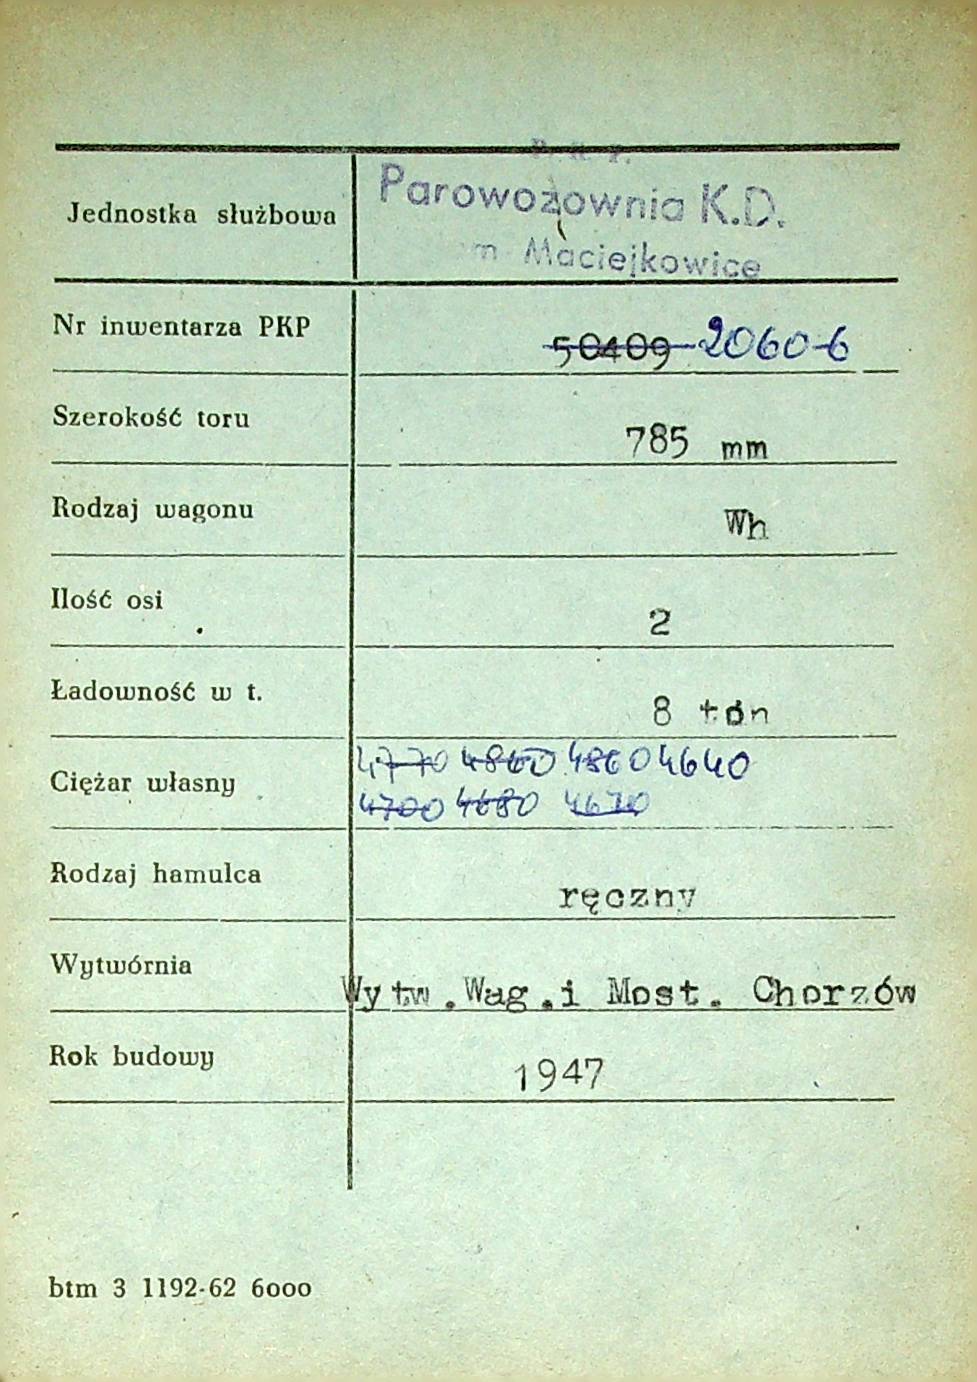 P. K. P.
Jednostka służbowa Parowozownia K.D.
Maciejkowice
Nr inwentarza PKP 50409 2060-6
Szerokość toru 785 mm
Rodzaj wagonu Wh
Ilość osi 2
Ładowność w t. 8 tón
Ciężar własny 4770 4860 4860 4640
4700 4680 4670
Rodzaj hamulca ręczny
Wytwórnia Wytw.Wag.i Most. Chorzów
Rok budowy 1947
btm 3 1192-62 6000